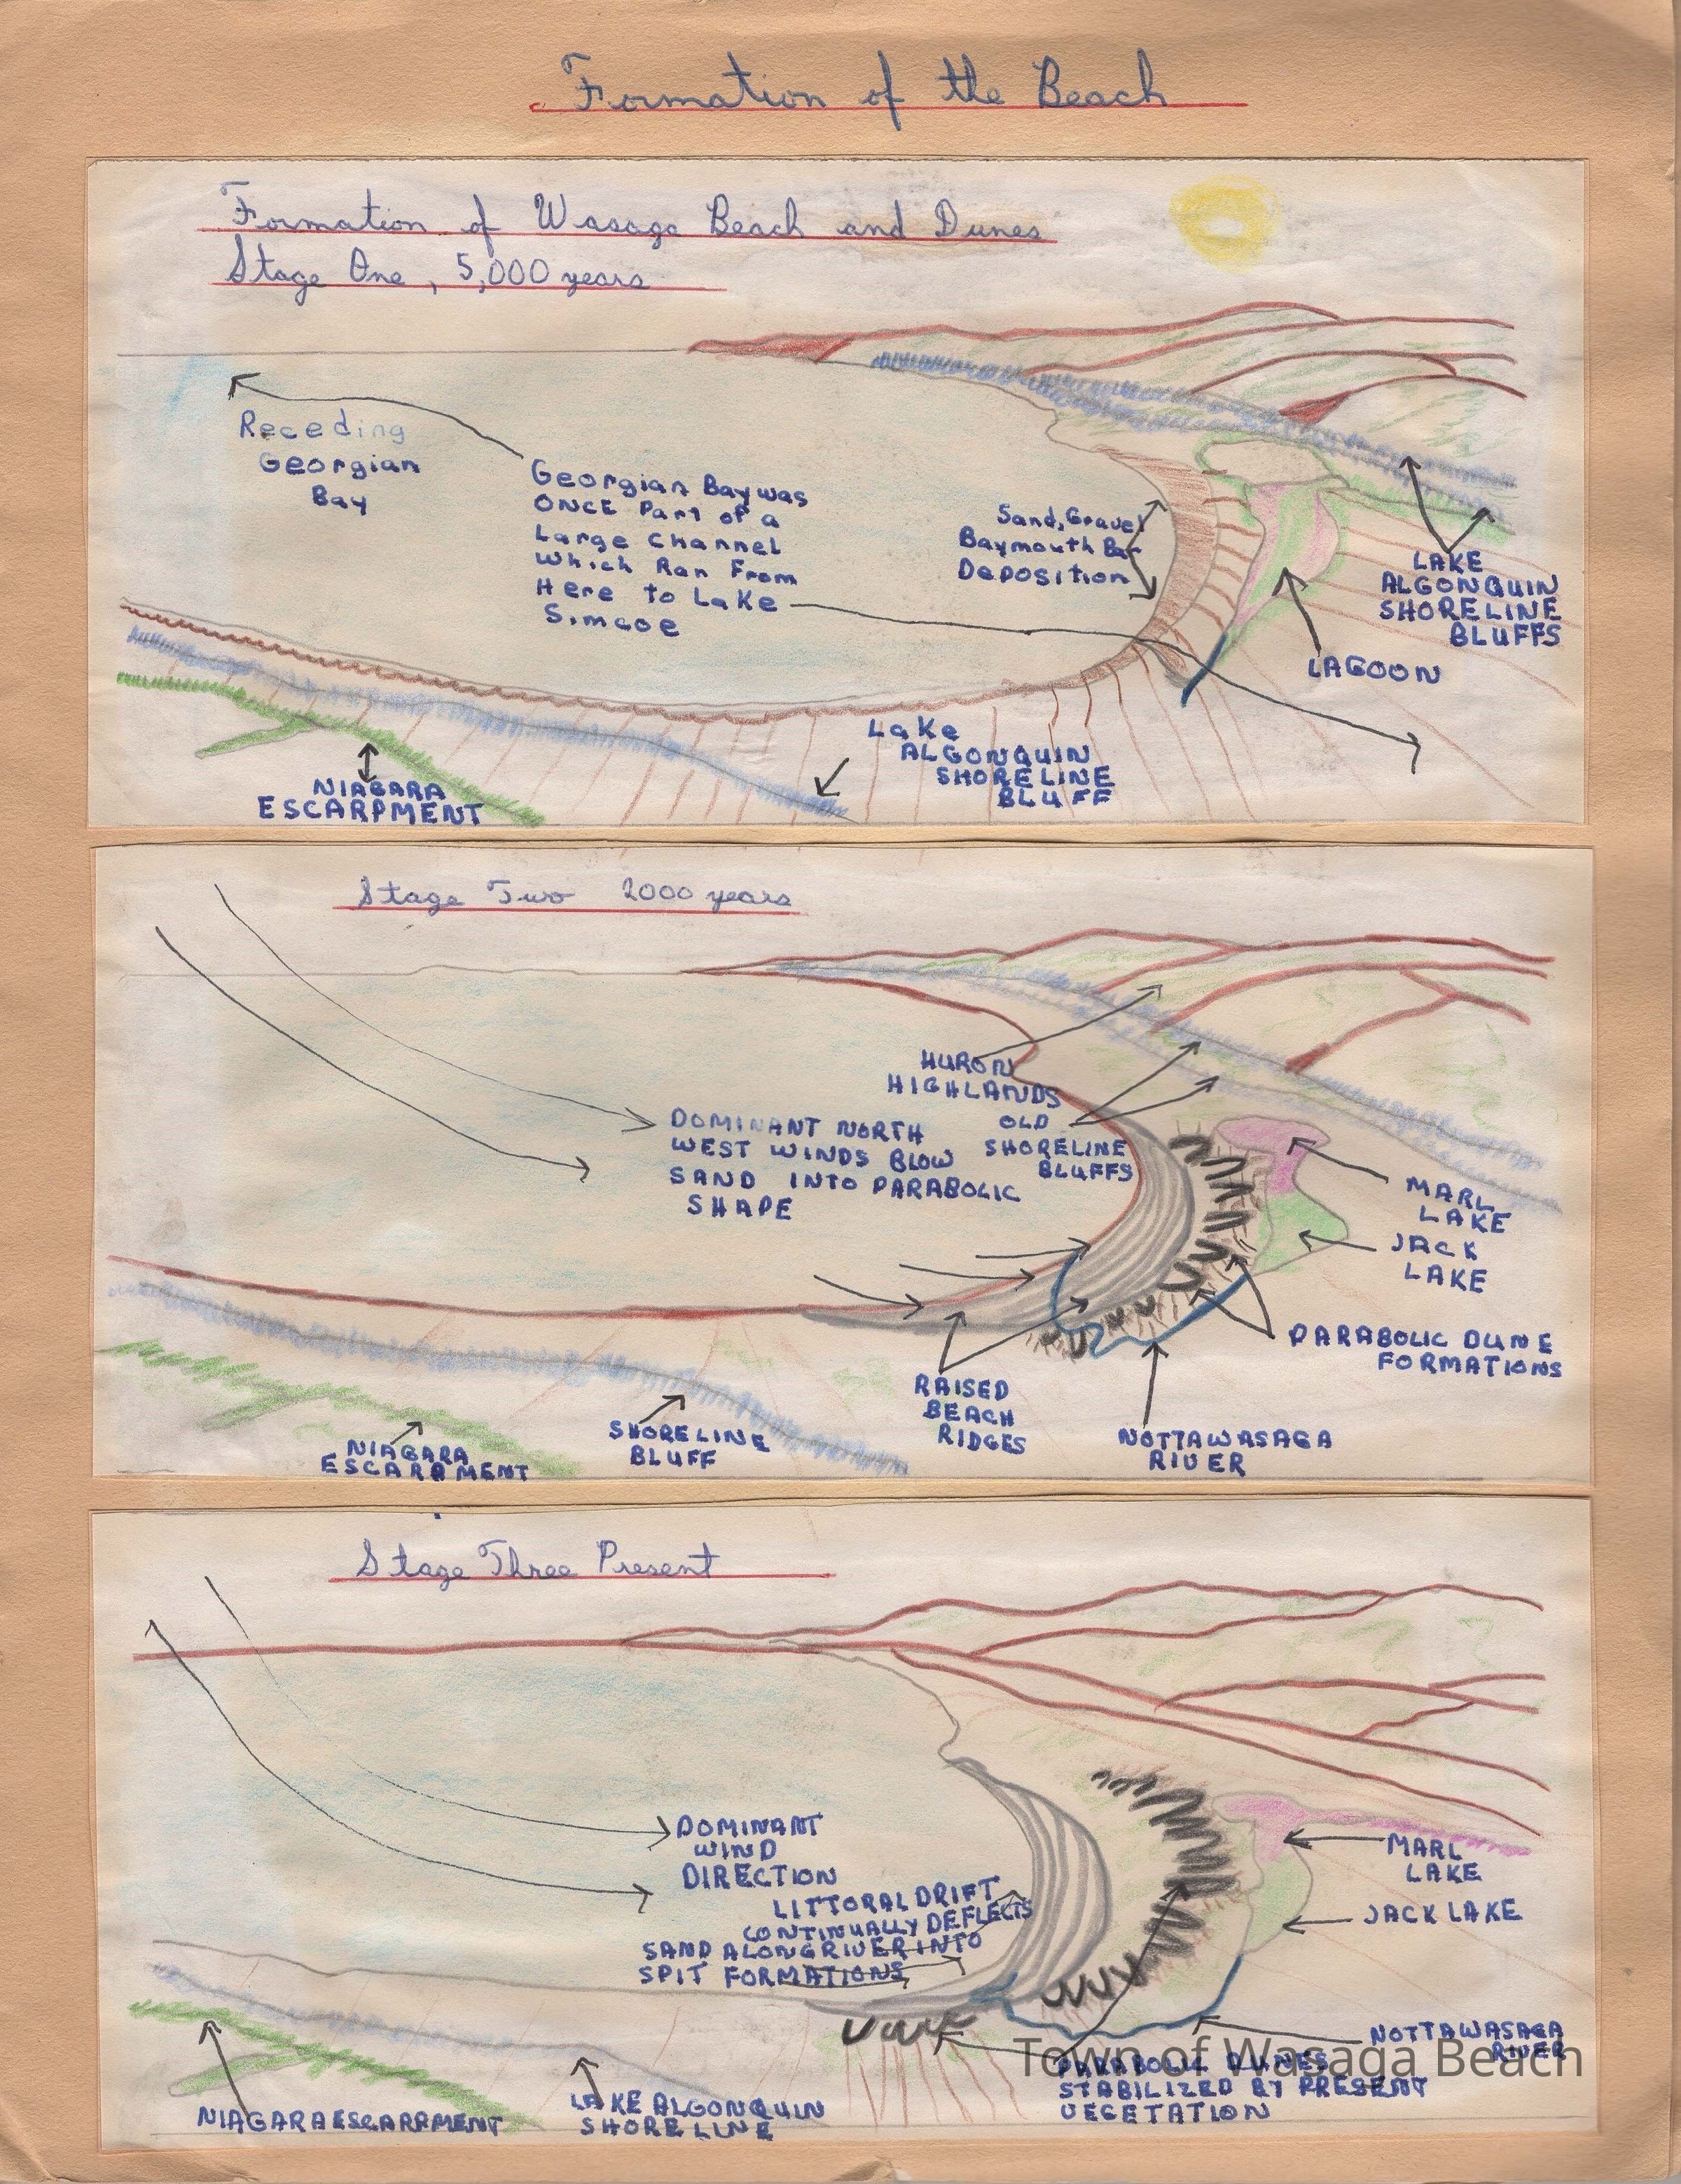 Formation of the Beach
Formation of Wasaga Beach and Dunes
Stage One, 5,000 years
Receding
Georgian
Bay
Georgian Bay was
ONCE Part of a
Large channel
Which Ran From
Here to Lake
Simcoe
Sand, Gravel
Baymouth Bar
Deposition
LAKE
ALGONQUIN
SHORELINE
BLUFFS
LAGOON
Lake
ALGONQUIN
SHORELINE
BLUFF
NIAGARA
ESCARPMENT
Stage Two 2000 years
HURON
HIGHLANDS
OLD
SHORELINE
BLUFFS
DOMINANT NORTH
WEST WINDS BLOW
SAND INTO PARABOLIC
SHAPE
MARL
LAKE
JACK
LAKE
PARABOLIC DUNE
FORMATIONS
RAISED
BEACH
RIDGES
NOTTAWASAGA
RIVER
SHORELINE
BLUFF
NIAGARA
ESCARPMENT
Stage Three Present
DOMINANT
WIND
DIRECTION
LITTORAL DRIFT
CONTINUALLY DEFLECTS
SAND ALONG RIVER INTO
SPIT FORMATIONS
MARL
LAKE
JACK LAKE
NOTTAWASAGA
RIVER
PARABOLIC DUNES
STABILIZED BY PRESENT
VEGETATION
LAKE ALGONQUIN
SHORE LINE
NIAGARA ESCARPMENT
Town of Wasaga Beach